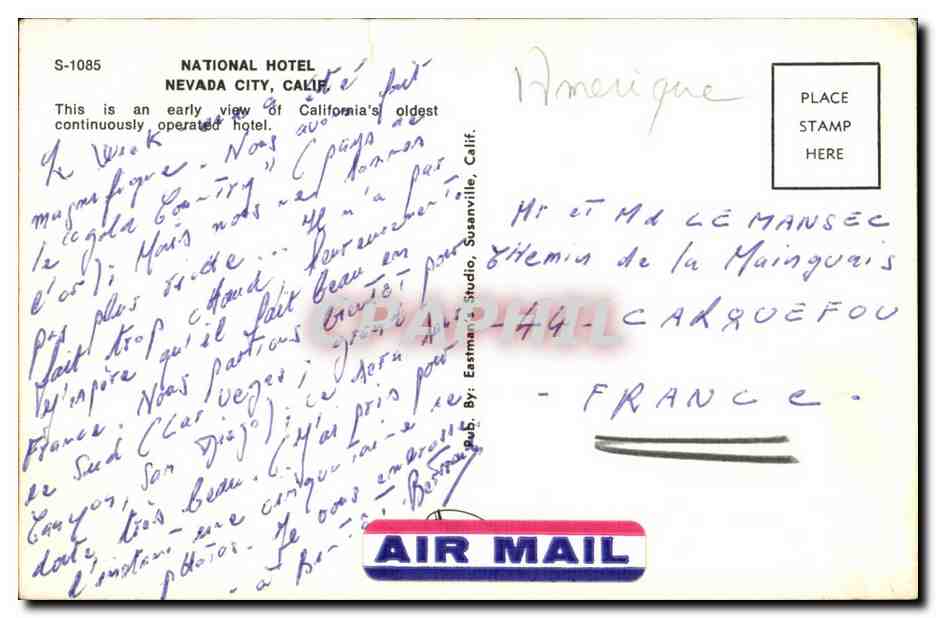 S-1085 NATIONAL HOTEL
NEVADA CITY, CALIF.
This is an early view of California's oldest
continuously operated hotel.
Le week end a été
magnifique. Nous avons fait
le "gold Country" (pays de
l'or); Mais nous ne sommes
pas plus riche... Il n'a pas
fait trop chaud, heureusement.
J'espère qu'il fait beau en
France. Nous partons bientôt pour
le Sud (Las Vegas, grand
Canyon, San Diego); ce sera sans
doute très beau. (J'ai pris pour
l'instant une cinquantaine de
photos. Je vous embrasse
Pub. By: Eastman's Studio, Susanville, Calif.
Amerique
PLACE
STAMP
HERE
Mr et Md LE MANSEC
Chemin de la Mainguais
- 44 - CARQUEFOU
- FRANCE.
CPAPHIL
AIR MAIL